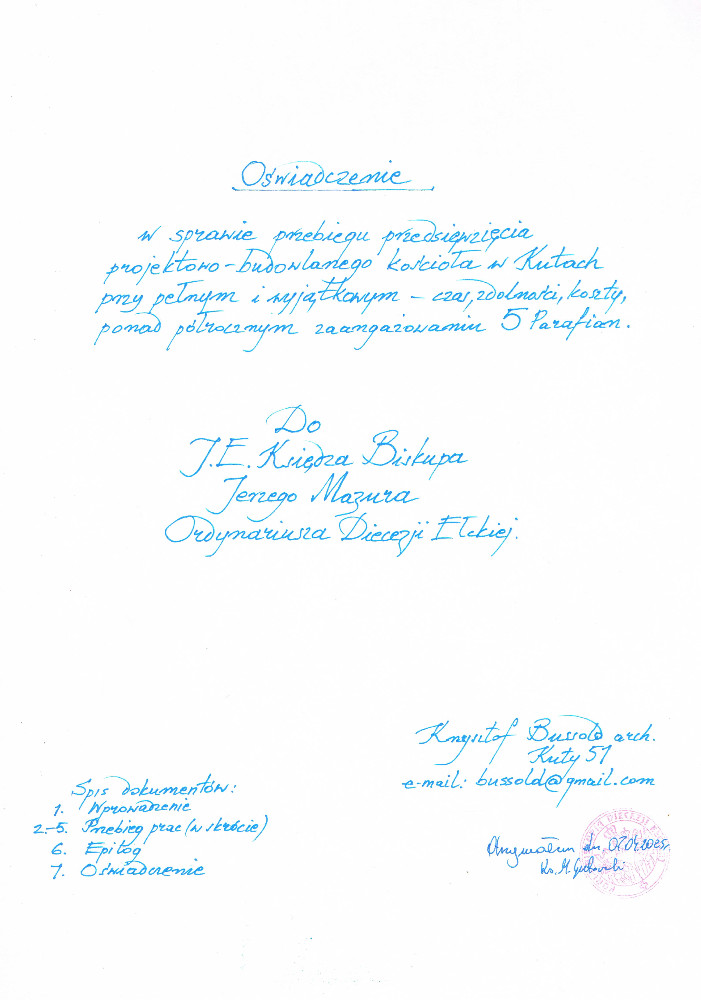 Oświadczenie
w sprawie przebiegu przedsięwzięcia
projektowo-budowlanego kościoła w Kutach
przy pełnym i wyjątkowym - czas, zdolności, koszty,
ponad półrocznym zaangażowaniu 5 Parafian.
Do
J.E. Księdza Biskupa
Jerzego Mazura
Ordynariusza Diecezji Ełckiej.
Krzysztof Bussold arch.
Kuty 51
e-mail: bussold@gmail.com
Spis dokumentów:
1. Wprowadzenie
2.-5. Przebieg prac (w skrócie)
6. Epilog
7. Oświadczenie
Otrzymałem dn. 07.04.2025r.
Ks. M.